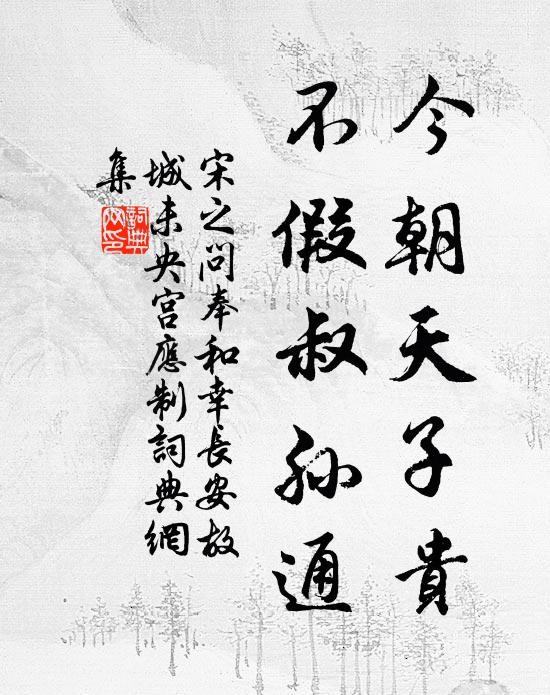 今朝天子貴
不假叔孫通
宋之問奉和幸長安故
城未央宮應制詞典網
集
詞典網印